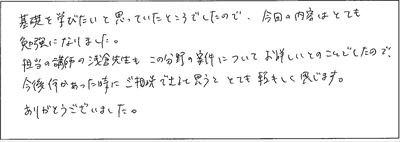 基礎を学びたいと思っていたところでしたので、今回の内容はとても
勉強になりました。
担当の講師の浅倉先生も この分野の案件について お詳しいとのことでしたので、
今後何かあった時に ご相談できると思うと とても頼もしく感じます。
ありがとうございました。